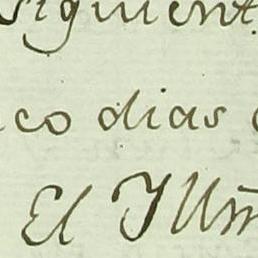 siguient
co dias
El Illm̃